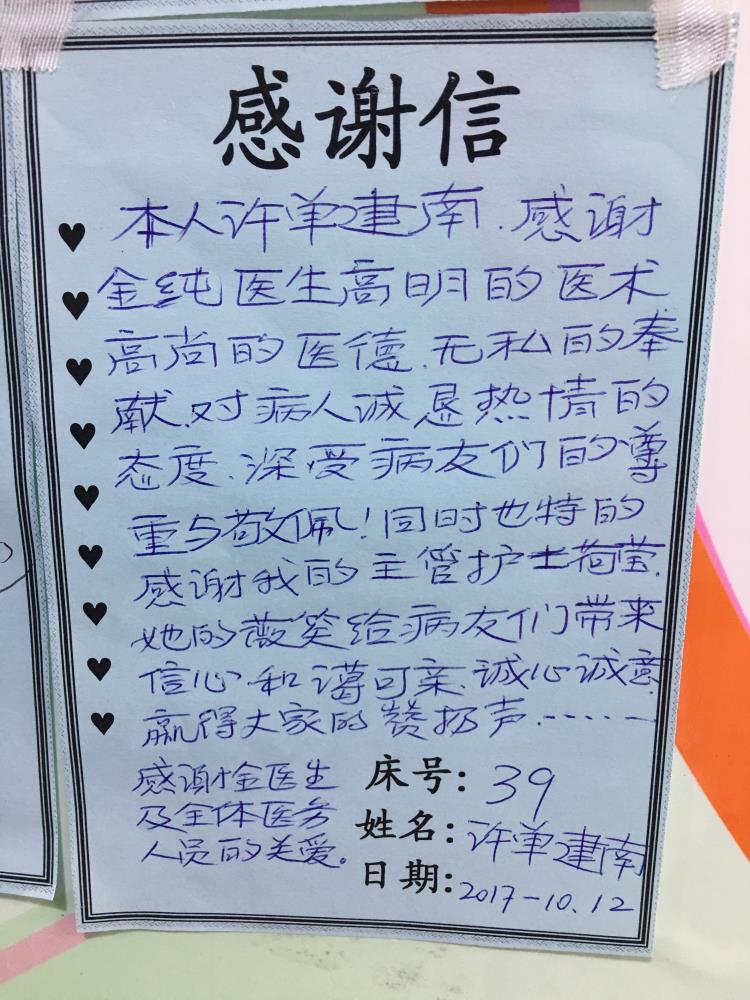 感谢信
本人许单建南.感谢
金纯医生高明的医术
高尚的医德.无私的奉
献.对病人诚恳热情的
态度.深受病友们的尊
重与敬佩!同时也特的
感谢我的主管护士荷莹.
她的薇笑给病友们带来
信心.和蔼可亲.诚心诚意.
赢得大家的赞扬声……
感谢金医生
及全体医务
人员的关爱。
床号:39
姓名:许单建南
日期:2017-10.12